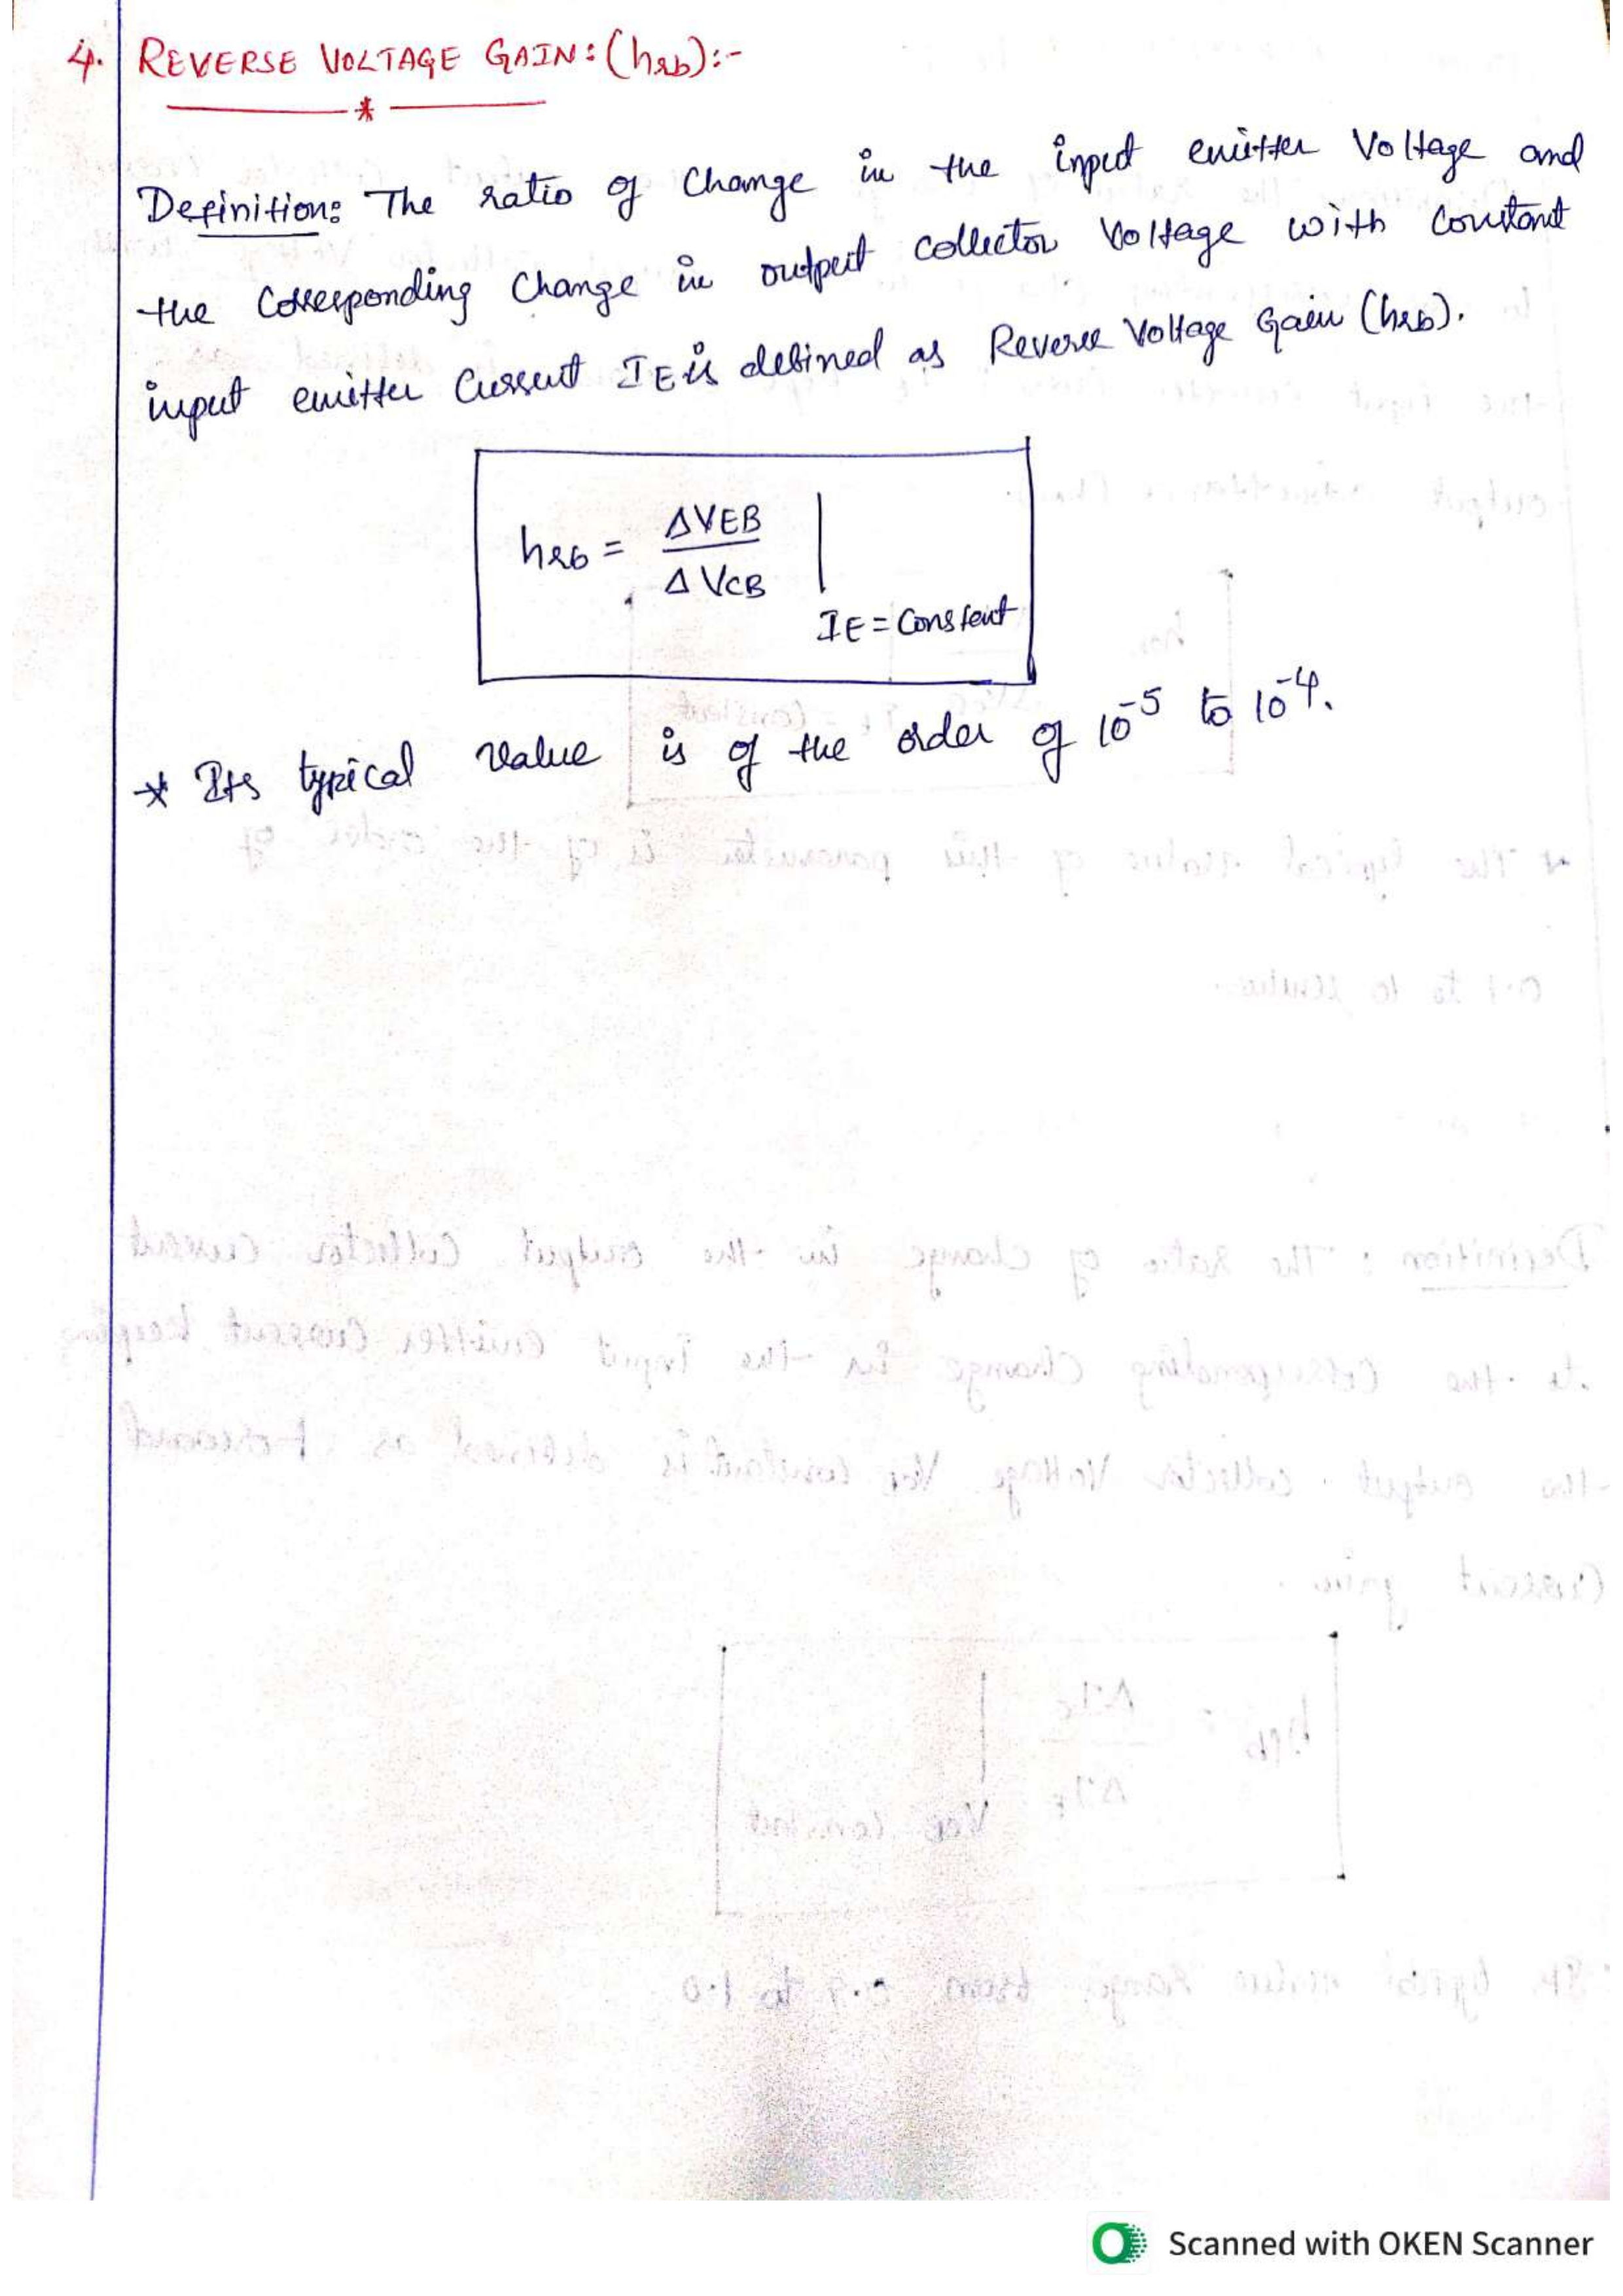 4. REVERSE VOLTAGE GAIN: (hrb):-
Definition: The ratio of Change in the input emitter Voltage and
the Corresponding Change in output collector Voltage with Constant
input emitter Current IE is defined as Reverse Voltage Gain (hrb).
hrb = ΔVEB / ΔVCB | IE = Constant
* Its typical value is of the order of 10^-5 to 10^-4.
Scanned with OKEN Scanner